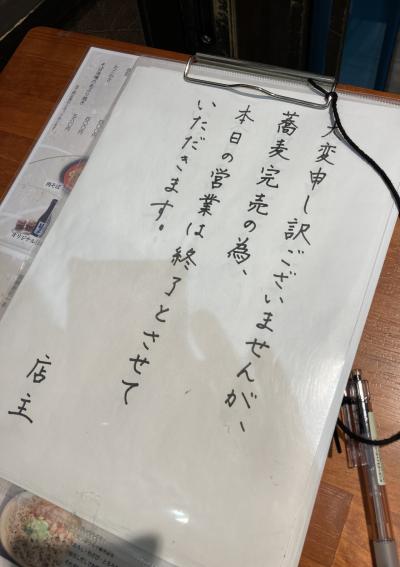 大変申し訳ございませんが、
蕎麦完売の為、
本日の営業は終了とさせて
いただきます。
店主
肉そば
オリジナル